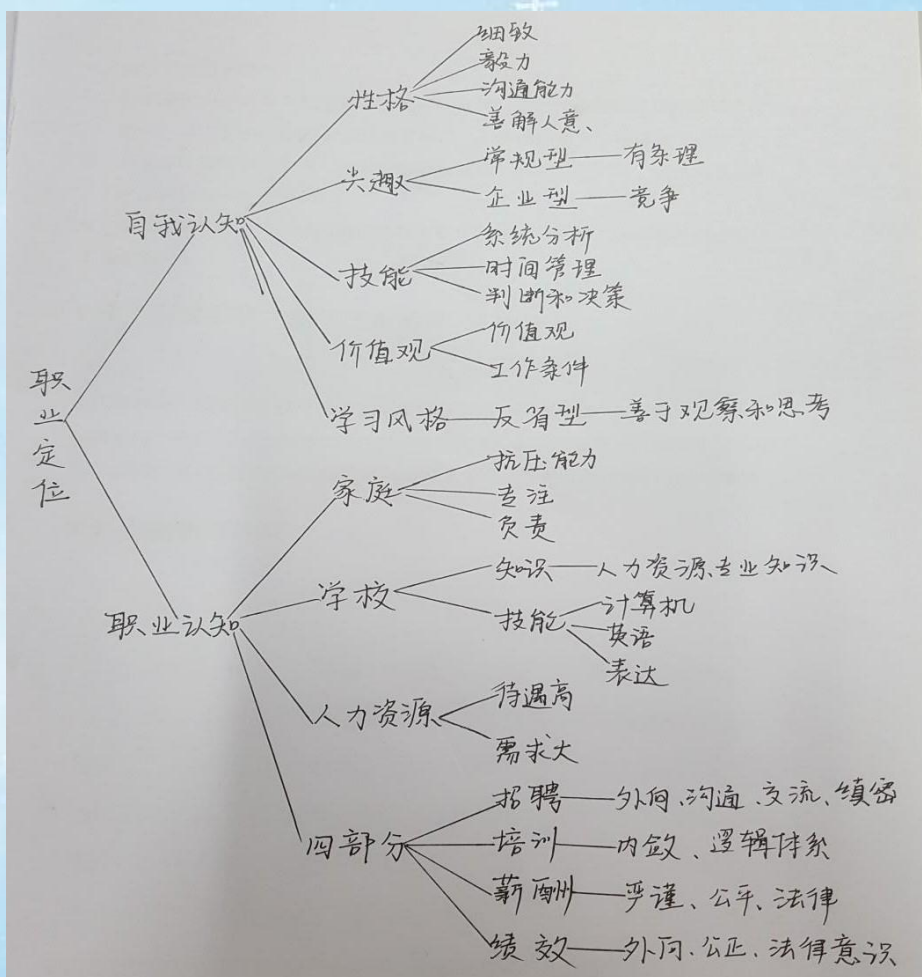 职业定位
自我认知
性格
细致
毅力
沟通能力
善解人意、
兴趣
常规型——有条理
企业型——竞争
技能
系统分析
时间管理
判断和决策
价值观
价值观
工作条件
学习风格——反省型——善于观察和思考
职业认知
家庭
抗压能力
专注
负责
学校
知识——人力资源专业知识
技能
计算机
英语
表达
人力资源
待遇高
需求大
四部分
招聘——外向、沟通、交流、缜密
培训——内敛、逻辑体系
薪酬——严谨、公平、法律
绩效——外向、公正、法律意识